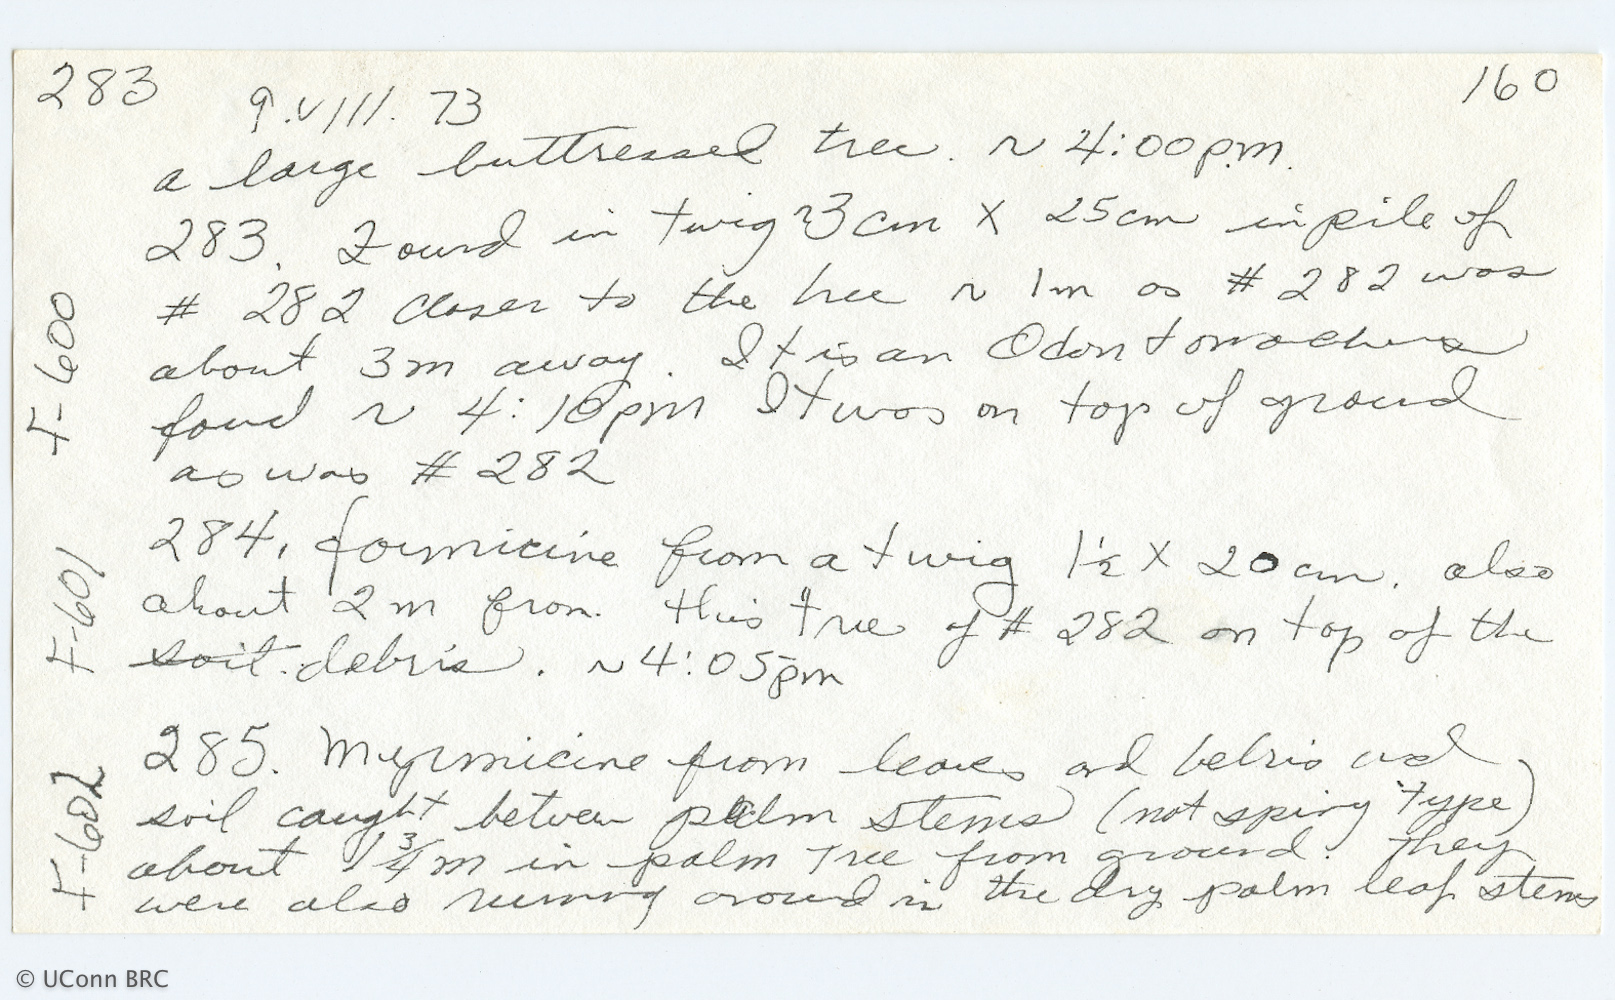 283
160
9.VIII.73
a large buttressed tree. ~ 4:00pm.
283. Found in twig ~3cm X 25cm in pile of
# 282 closer to the tree ~ 1m as # 282 was
about 3m away. It is an Odontomachus
found ~ 4:10pm It was on top of ground
as was # 282
284. formicine from a twig 1½ X 20cm. also
about 2m from this tree of # 282 on top of the
soil. debris. ~4:05pm
285. Myrmicine from leaves and debris and
soil caught between palm stems (not spiny type)
about 1¾m in palm tree from ground. They
were also running around in the dry palm leaf stems
F-600
F-601
F-602
© UConn BRC